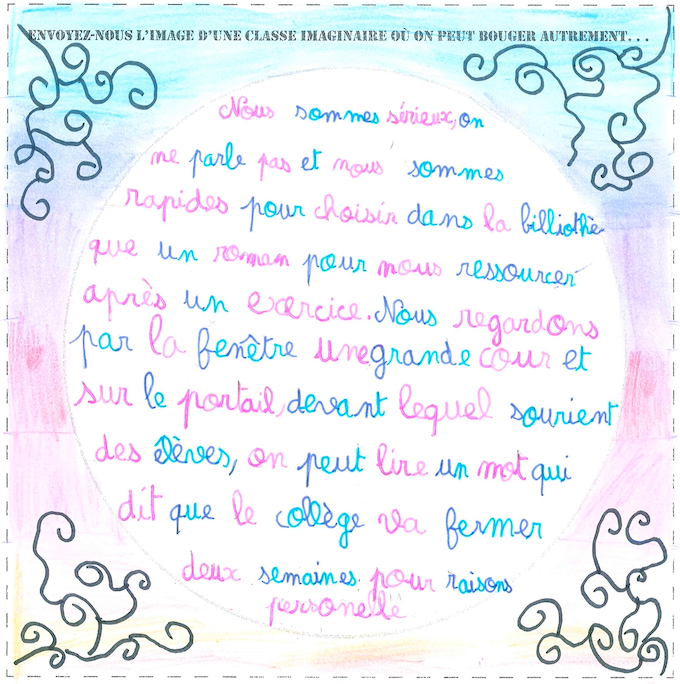 ENVOYEZ-NOUS L'IMAGE D'UNE CLASSE IMAGINAIRE OÙ ON PEUT BOUGER AUTREMENT...
Nous sommes sérieux, on
ne parle pas et nous sommes
rapides pour choisir dans la billiothè-
que un roman pour nous ressourcer
après un exercice. Nous regardons
par la fenêtre une grande cour et
sur le portail, devant lequel sourient
des élèves, on peut lire un mot qui
dit que le collège va fermer
deux semaines pour raisons
personelle